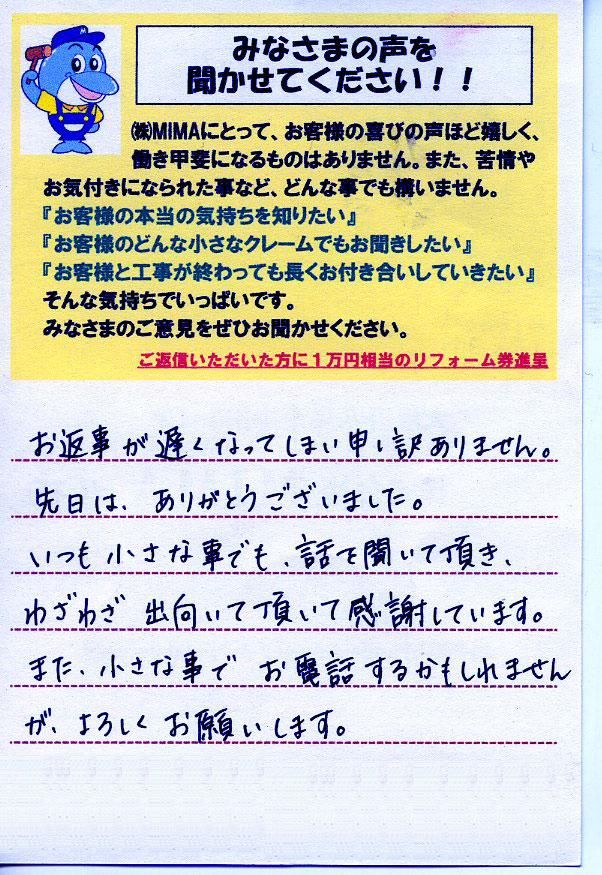 みなさまの声を
聞かせてください！！
㈱MIMAにとって、お客様の喜びの声ほど嬉しく、
働き甲斐になるものはありません。また、苦情や
お気付きになられた事など、どんな事でも構いません。
『お客様の本当の気持ちを知りたい』
『お客様のどんな小さなクレームでもお聞きしたい』
『お客様と工事が終わっても長くお付き合いしていきたい』
そんな気持ちでいっぱいです。
みなさまのご意見をぜひお聞かせください。
ご返信いただいた方に１万円相当のリフォーム券進呈
お返事が遅くなってしまい申し訳ありません。
先日は、ありがとうございました。
いつも小さな事でも、話を聞いて頂き、
わざわざ出向いて頂いて感謝しています。
また、小さな事でお電話するかもしれません
が、よろしくお願いします。